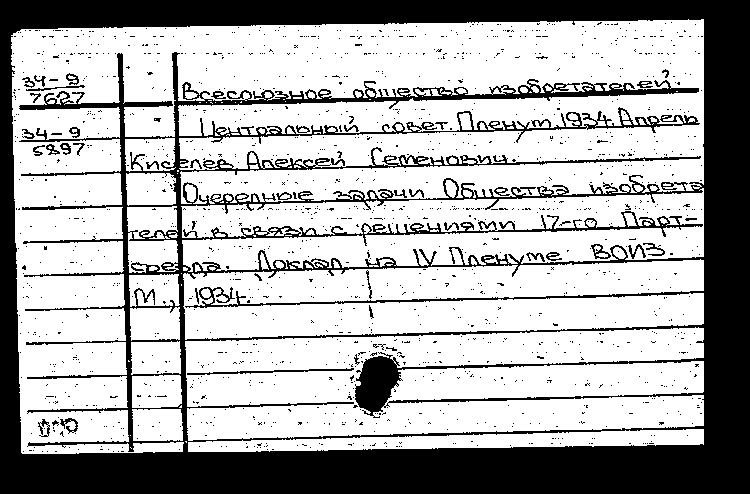 34-9
7627
Всесоюзное общество изобретателей.
34-9
5897
Центральный совет. Пленум. 1934. Апрель
Киселев, Алексей Семенович.
Очередные задачи Общества изобрета
телей в связи с решениями 17-го Парт-
съезда. Доклад на IV Пленуме ВОИЗ.
М., 1934.